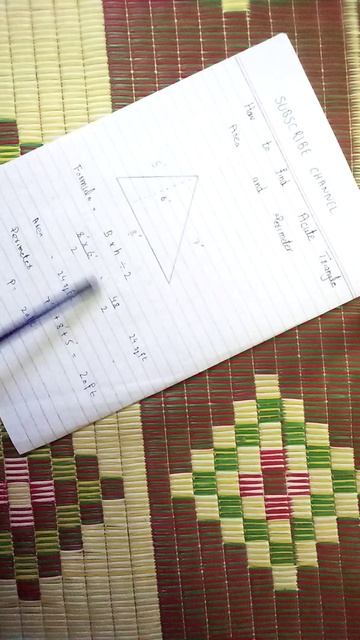 SUBSCRIBE CHANNEL
How to find Acute Triangle
Area and Perimeter
5'
6'
8'
7'
Formula = B x h ÷ 2
8' x 6' / 2 = 48 / 2 = 24 sq ft
Area = 24 sq ft
Perimeter = 7 + 8 + 5 = 20 ft
P = 20 ft